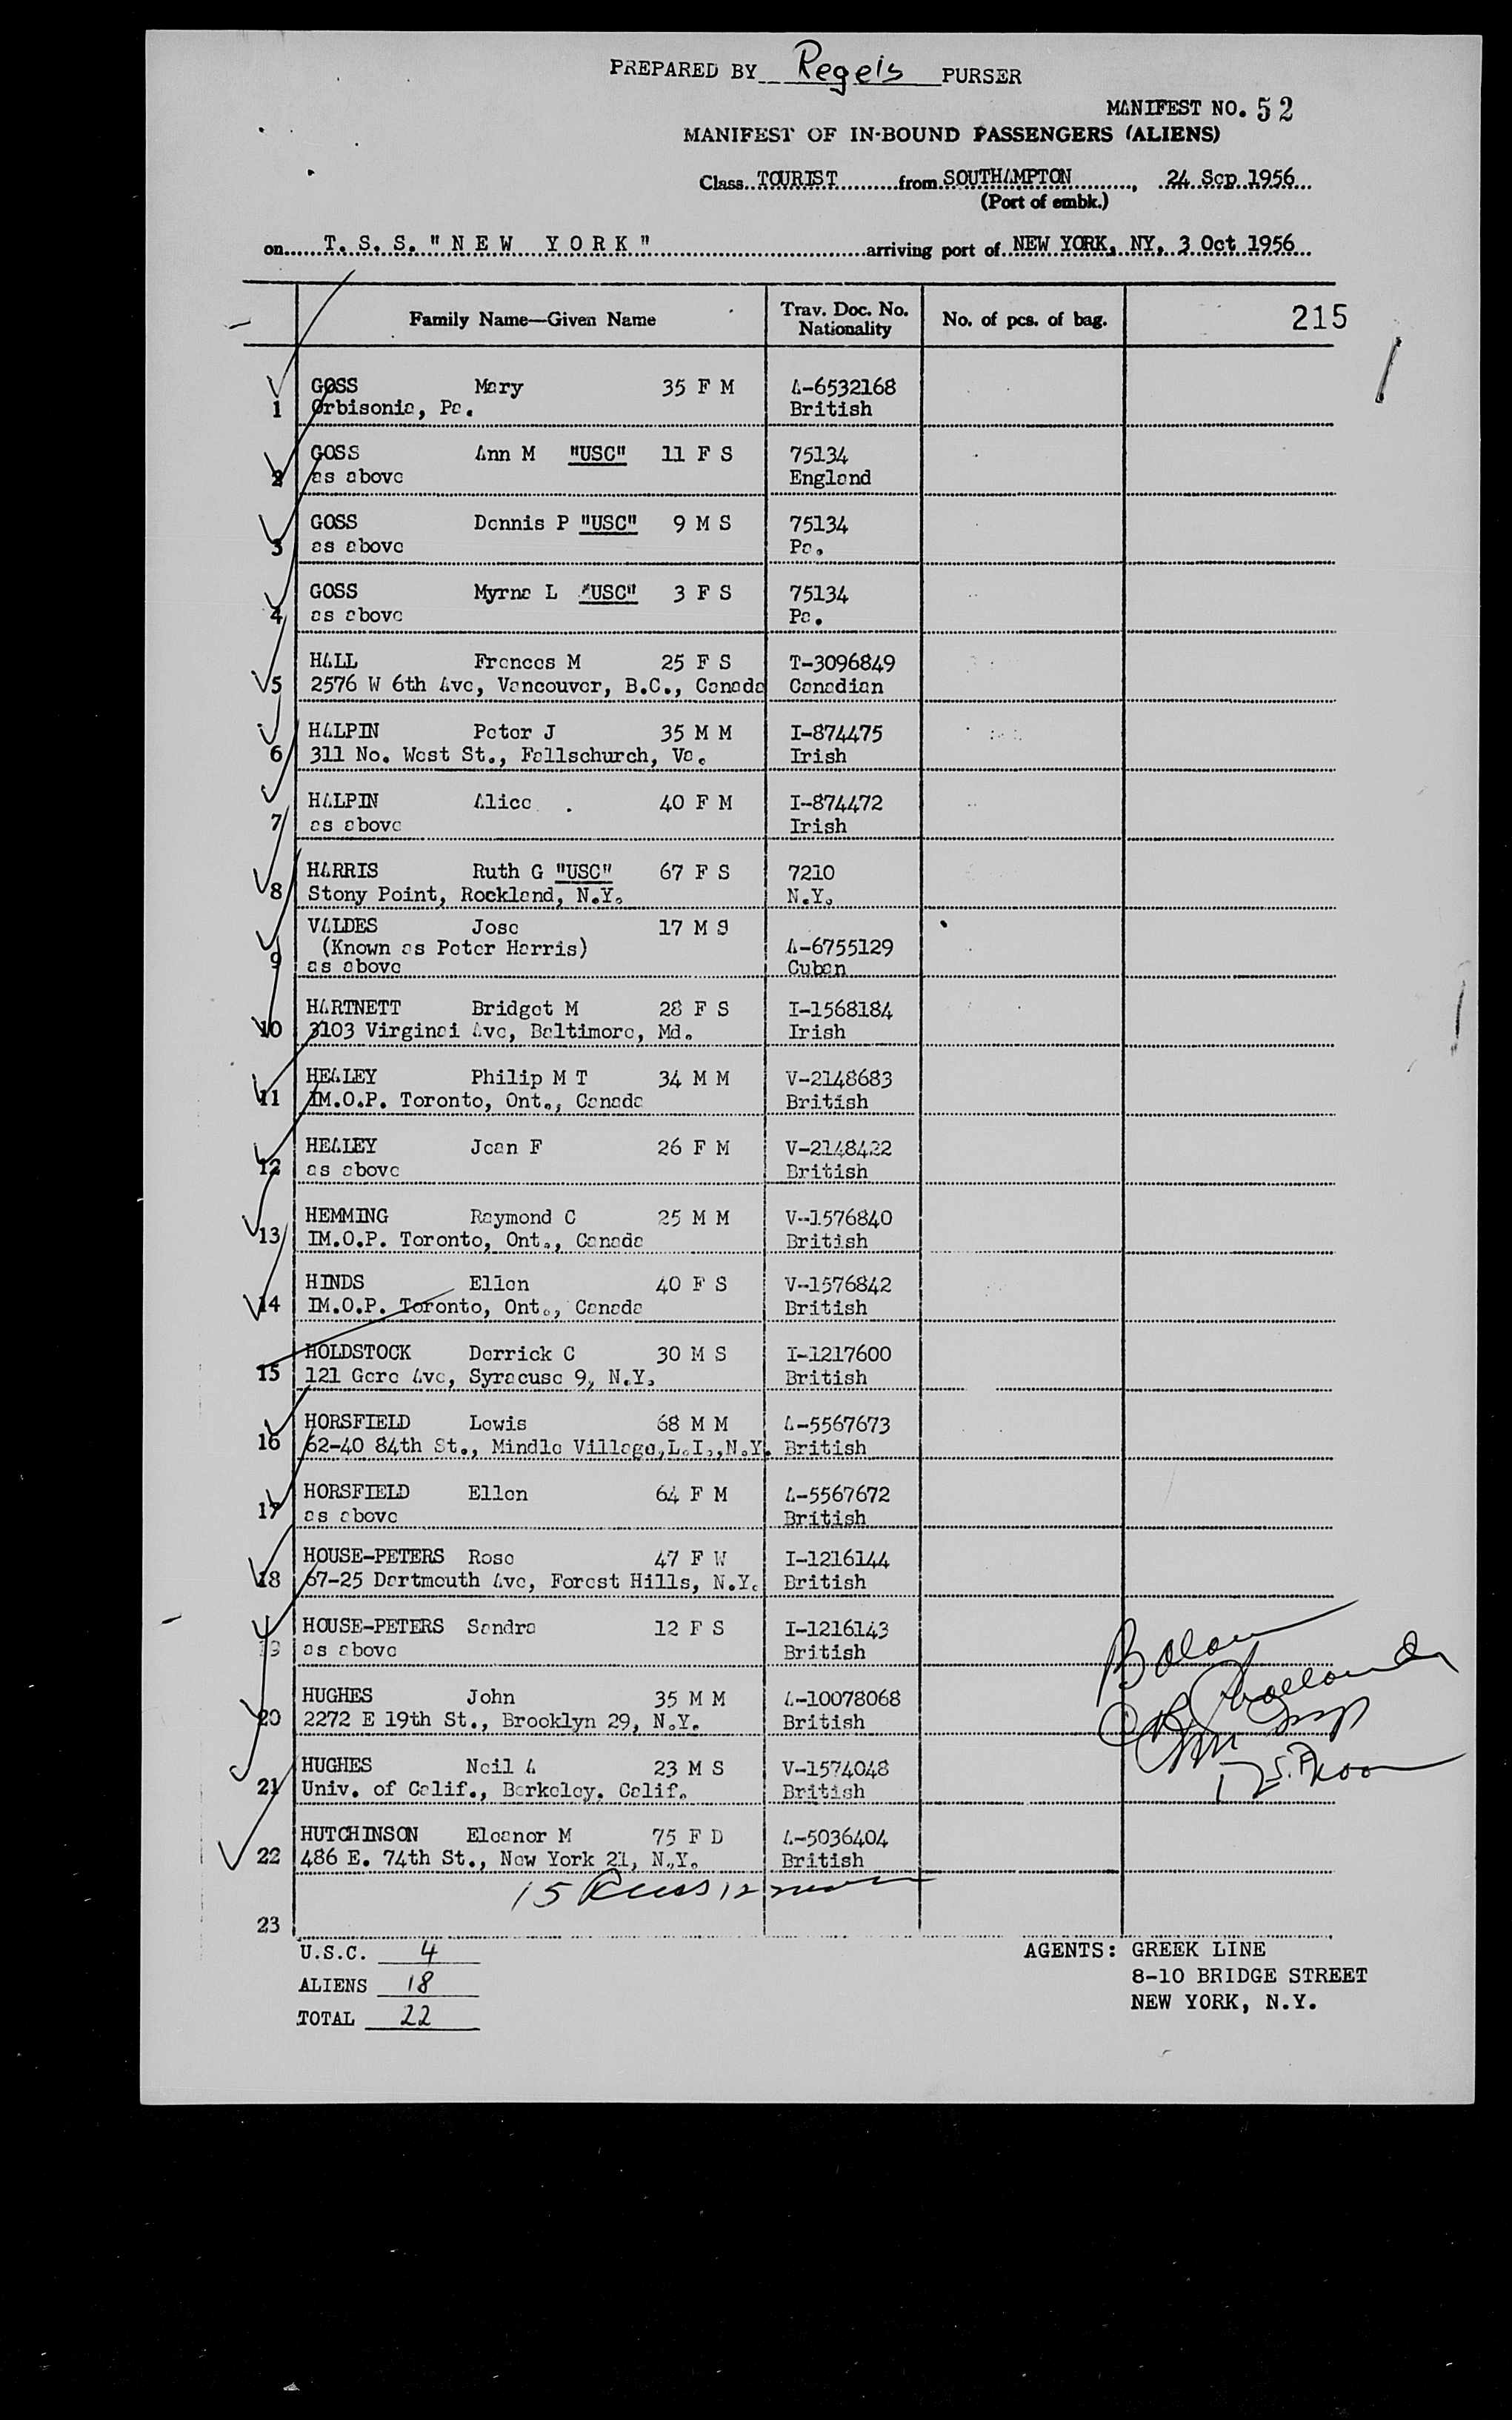 PREPARED BY Regels PURSER
MANIFEST NO. 52
MANIFEST OF IN-BOUND PASSENGERS (ALIENS)
Class TOURIST from SOUTHAMPTON, 24 Sep 1956
(Port of embk.)
on T. S. S. "NEW YORK" arriving port of NEW YORK, NY, 3 Oct 1956
Family Name—Given Name Trav. Doc. No. Nationality No. of pcs. of bag. 215
GOSS Mary 35 F M A-6532168
1 Orbisonia, Pa. British
GOSS Ann M "USC" 11 F S 75134
2 as above England
GOSS Dennis P "USC" 9 M S 75134
3 as above Pa.
GOSS Myrna L "USC" 3 F S 75134
4 as above Pa.
HALL Frances M 25 F S T-3096849
5 2576 W 6th Ave, Vancouver, B.C., Canada Canadian
HALPIN Peter J 35 M M I-874475
6 311 No. West St., Fallschurch, Va. Irish
HALPIN Alice 40 F M I-874472
7 as above Irish
HARRIS Ruth G "USC" 67 F S 7210
8 Stony Point, Rockland, N.Y. N.Y.
VALDES Jose 17 M S
(Known as Peter Harris) A-6755129
9 as above Cuban
HARTNETT Bridget M 28 F S I-1568184
10 3103 Virginai Ave, Baltimore, Md. Irish
HEALEY Philip M T 34 M M V-2148683
11 IM.O.P. Toronto, Ont., Canada British
HEALEY Jean F 26 F M V-2148422
12 as above British
HEMMING Raymond C 25 M M V-1576840
13 IM.O.P. Toronto, Ont., Canada British
HINDS Ellen 40 F S V-1576842
14 IM.O.P. Toronto, Ont., Canada British
HOLDSTOCK Derrick C 30 M S I-1217600
15 121 Gere Ave, Syracuse 9, N.Y. British
HORSFIELD Lewis 68 M M A-5567673
16 62-40 84th St., Mindle Village, L.I., N.Y. British
HORSFIELD Ellen 64 F M A-5567672
17 as above British
HOUSE-PETERS Rose 47 F W I-1216144
18 67-25 Dartmouth Ave, Forest Hills, N.Y. British
HOUSE-PETERS Sandra 12 F S I-1216143
19 as above British
HUGHES John 35 M M A-10078068
20 2272 E 19th St., Brooklyn 29, N.Y. British
HUGHES Neil A 23 M S V-1574048
21 Univ. of Calif., Berkeley. Calif. British
HUTCHINSON Eleanor M 75 F D A-5036404
22 486 E. 74th St., New York 21, N.Y. British
15
23
U.S.C. 4
ALIENS 18
TOTAL 22
AGENTS: GREEK LINE
8-10 BRIDGE STREET
NEW YORK, N.Y.